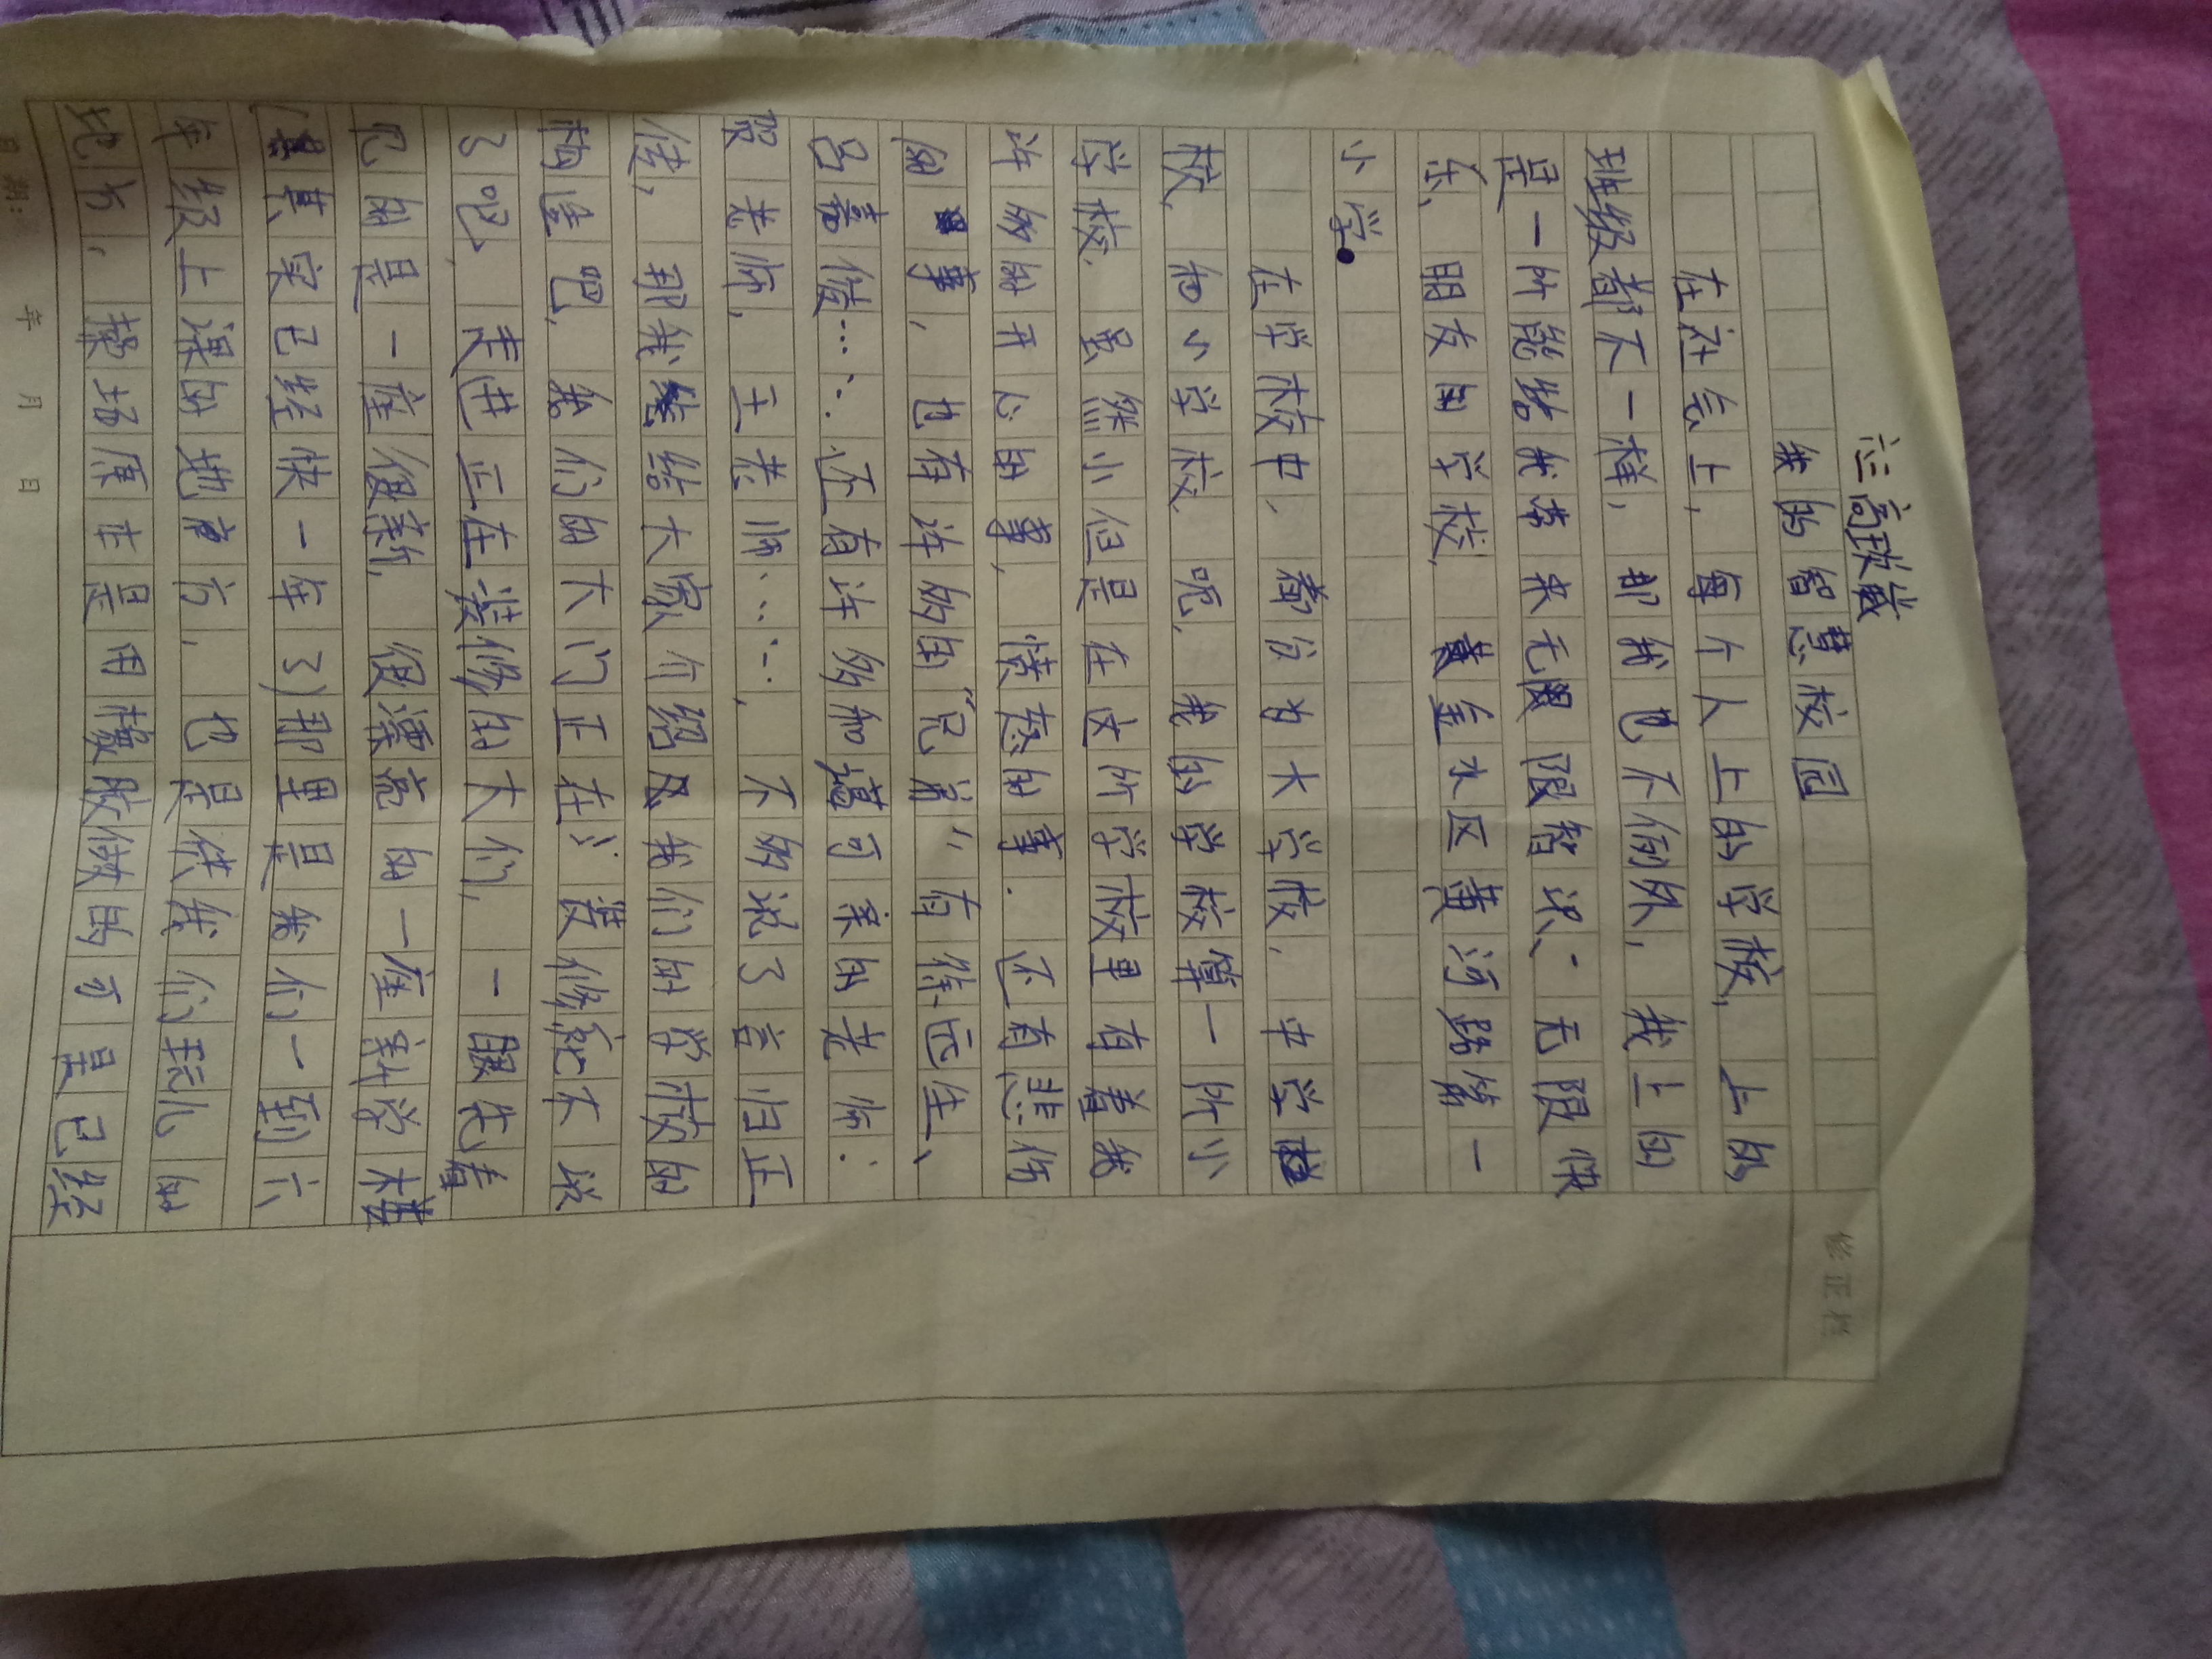 六三 高玫崴
我的智慧校园
在社会上，每个人上的学校，上的
班级都不一样，那我也不例外，我上的
是一所能给我带来无限智识、无限快
乐、朋友的学校，黄金水区黄河路第一
小学。
在学校中，都分为大学校，中学校
校，和小学校，呃，我的学校算一所小
学校，虽然小但是在这所学校里有着我
许多的开心的事，愤怒的事，还有悲伤
的事，也有许多的“兄弟”有徐远生、
吕嘉俊……还有许多和蔼可亲的老师：
贺老师，王老师……，不多说了言归正
传，那我给大家介绍我们的学校的
构造吧，我们的大门正在装修就不谈
了吧，走进正在装修的大门，一眼先看
见的是一座很新，很漂亮的一座新学楼
（其实已经快一年了）那里是我们一到六
年级上课的地方，也是供我们玩儿的
地方，操场原主是用橡胶做的可是已经
修正栏
日期： 年 月 日